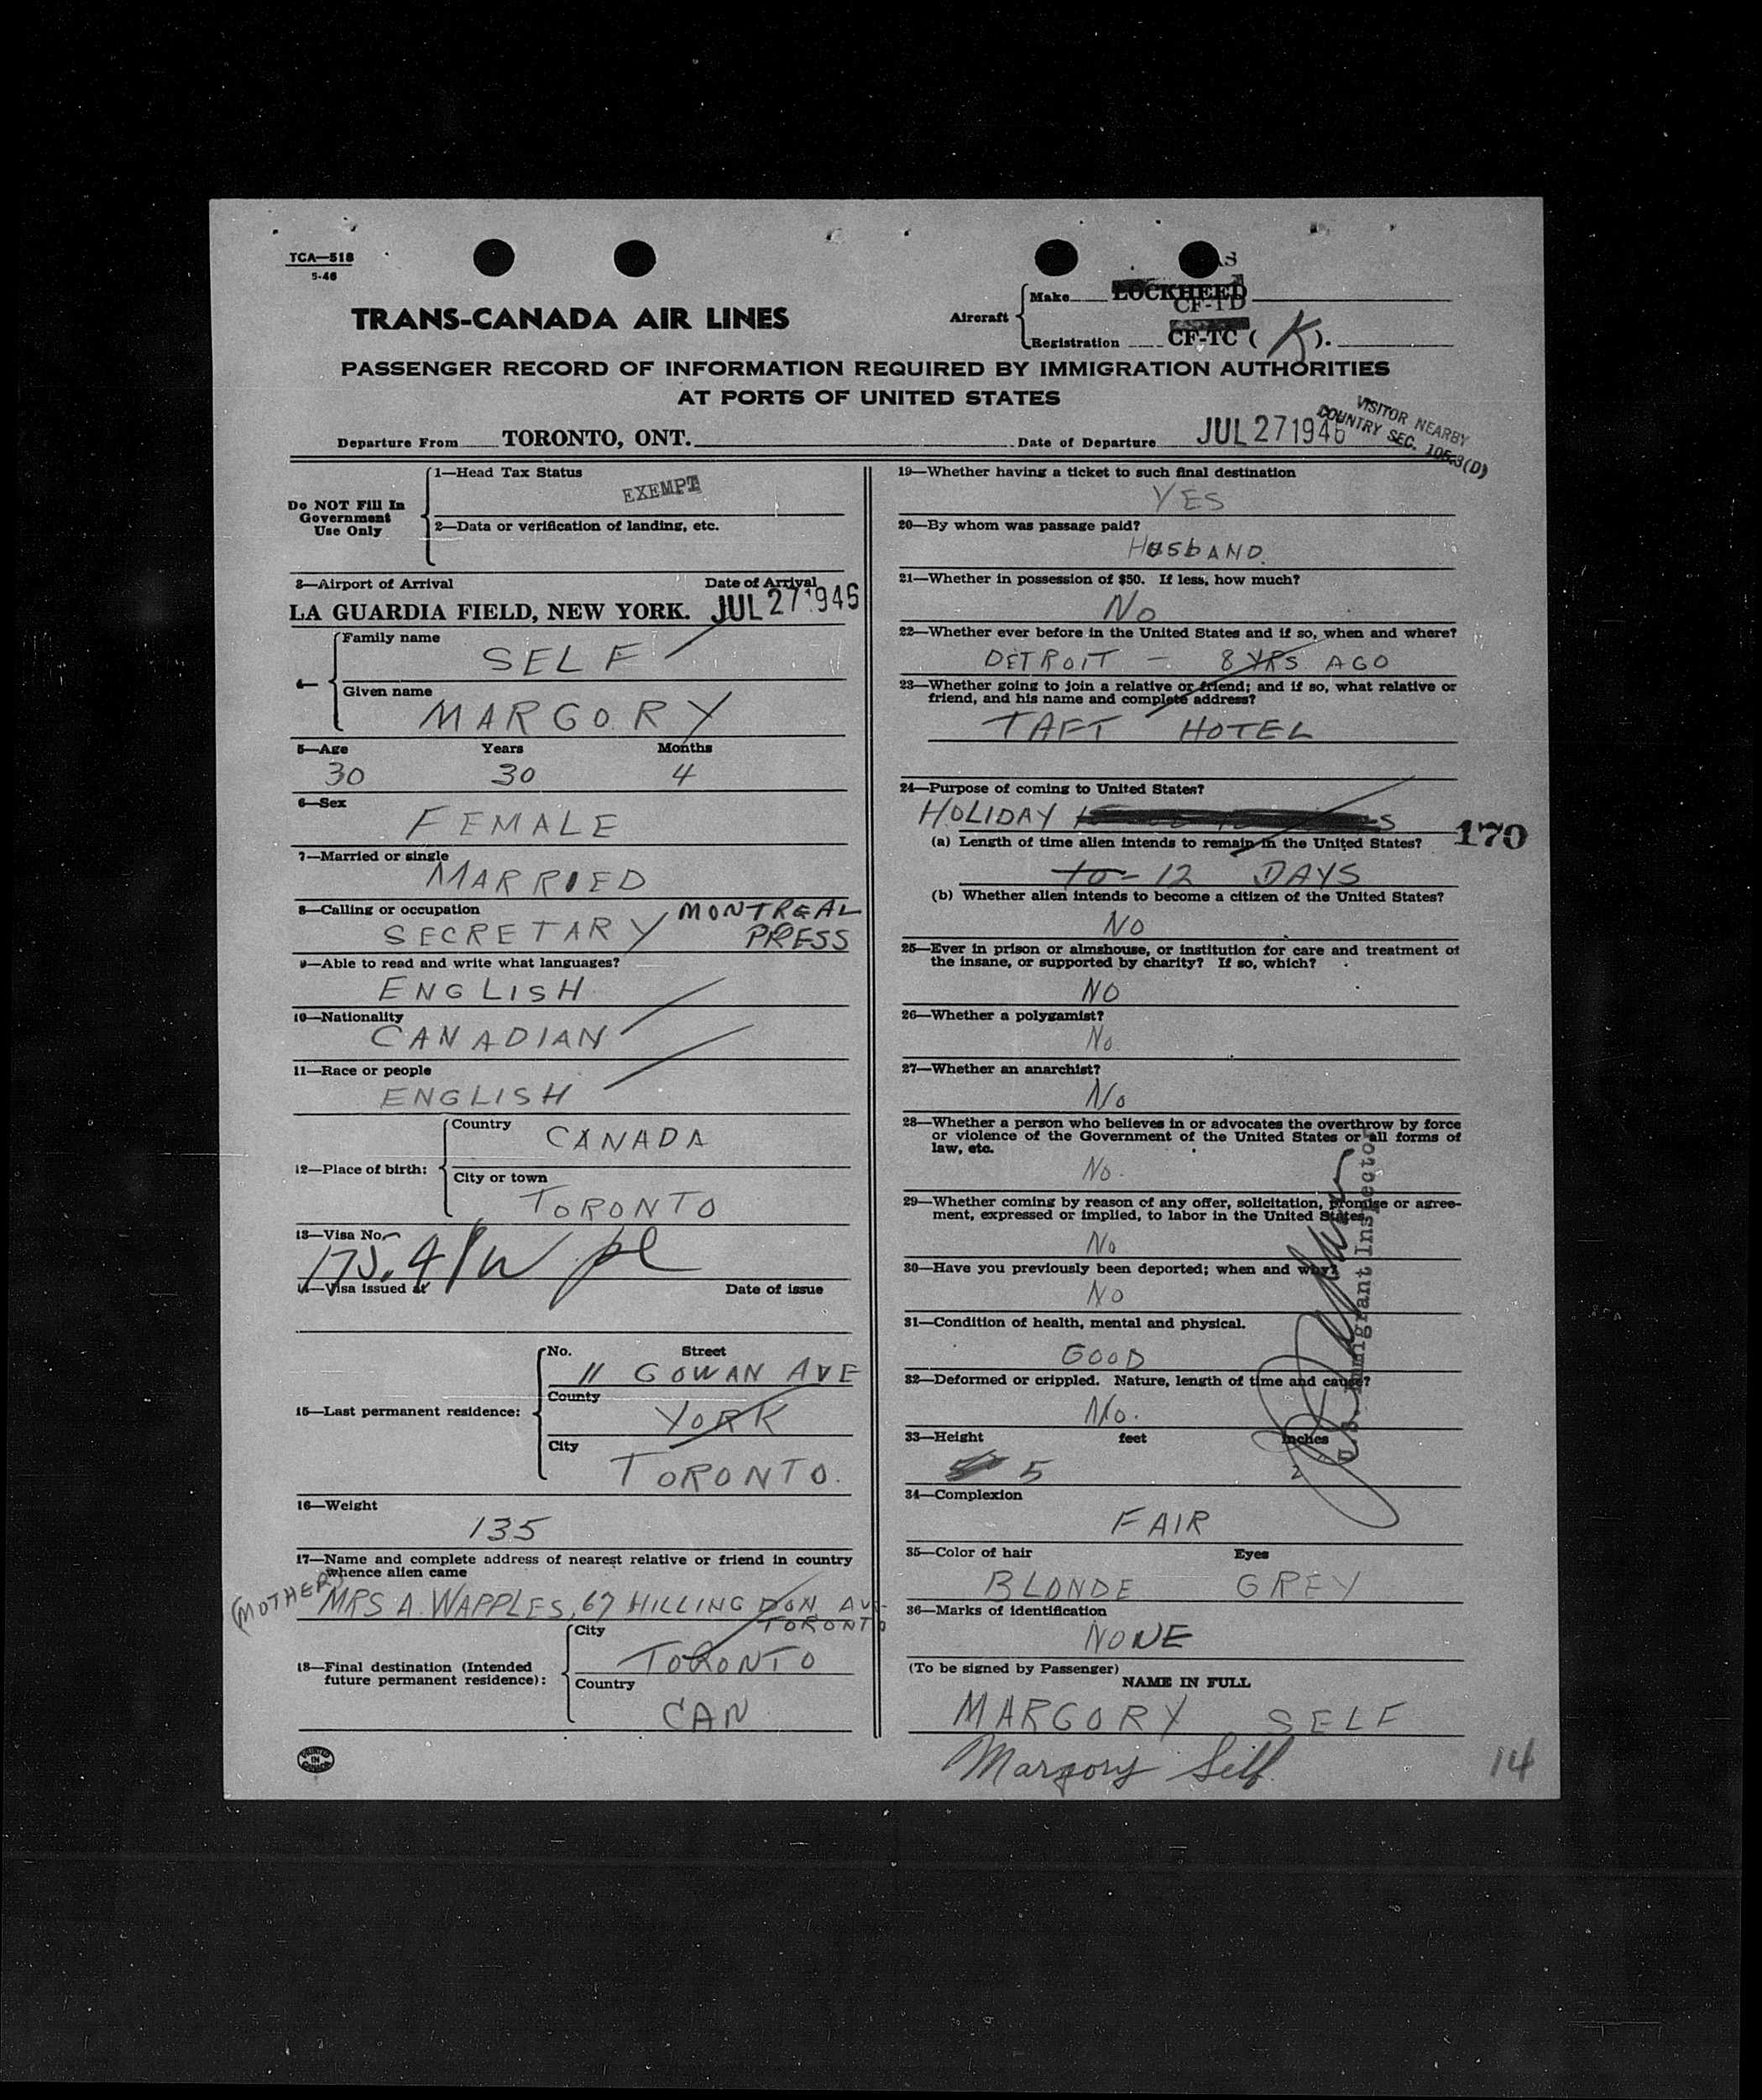 TCA—518
5-46
TRANS-CANADA AIR LINES
Aircraft
Make LOCKHEED
CF-TD
Registration CF-TC ( K ).
PASSENGER RECORD OF INFORMATION REQUIRED BY IMMIGRATION AUTHORITIES
AT PORTS OF UNITED STATES
VISITOR NEARBY
COUNTRY SEC. 105.3(D)
Departure From TORONTO, ONT. Date of Departure JUL 27 1946
Do NOT Fill In
Government
Use Only
1—Head Tax Status
EXEMPT
2—Data or verification of landing, etc.
3—Airport of Arrival Date of Arrival
LA GUARDIA FIELD, NEW YORK. JUL 27 1946
4—
Family name
SELF
Given name
MARGORY
5—Age Years Months
30 30 4
6—Sex
FEMALE
7—Married or single
MARRIED
8—Calling or occupation
SECRETARY MONTREAL
PRESS
9—Able to read and write what languages?
ENGLISH
10—Nationality
CANADIAN
11—Race or people
ENGLISH
12—Place of birth:
Country
CANADA
City or town
TORONTO
13—Visa No.
14—Visa issued at Date of issue
15—Last permanent residence:
No. Street
11 GOWAN AVE
County
YORK
City
TORONTO.
16—Weight
135
17—Name and complete address of nearest relative or friend in country
whence alien came
(MOTHER) MRS A. WAPPLES, 67 HILLINGDON AVE
TORONTO
18—Final destination (Intended
future permanent residence):
City
TORONTO
Country
CAN
PRINTED
IN
CANADA
19—Whether having a ticket to such final destination
YES
20—By whom was passage paid?
HUSbAND.
21—Whether in possession of $50. If less, how much?
No
22—Whether ever before in the United States and if so, when and where?
DETROIT — 8 YRS AGO
23—Whether going to join a relative or friend; and if so, what relative or
friend, and his name and complete address?
TAFT HOTEL
24—Purpose of coming to United States?
HOLIDAY
170
(a) Length of time alien intends to remain in the United States?
to- 12 DAYS
(b) Whether alien intends to become a citizen of the United States?
NO
25—Ever in prison or almshouse, or institution for care and treatment of
the insane, or supported by charity? If so, which?
NO
26—Whether a polygamist?
No
27—Whether an anarchist?
No
28—Whether a person who believes in or advocates the overthrow by force
or violence of the Government of the United States or all forms of
law, etc.
No.
29—Whether coming by reason of any offer, solicitation, promise or agree-
ment, expressed or implied, to labor in the United States.
No
30—Have you previously been deported; when and why?
NO
31—Condition of health, mental and physical.
GOOD
32—Deformed or crippled. Nature, length of time and cause?
No.
33—Height feet inches
5 2
U.S. Immigrant Inspector
34—Complexion
FAIR
35—Color of hair Eyes
BLONDE GREY
36—Marks of identification
NONE
(To be signed by Passenger)
NAME IN FULL
MARGORY SELF
Margory Self.
14